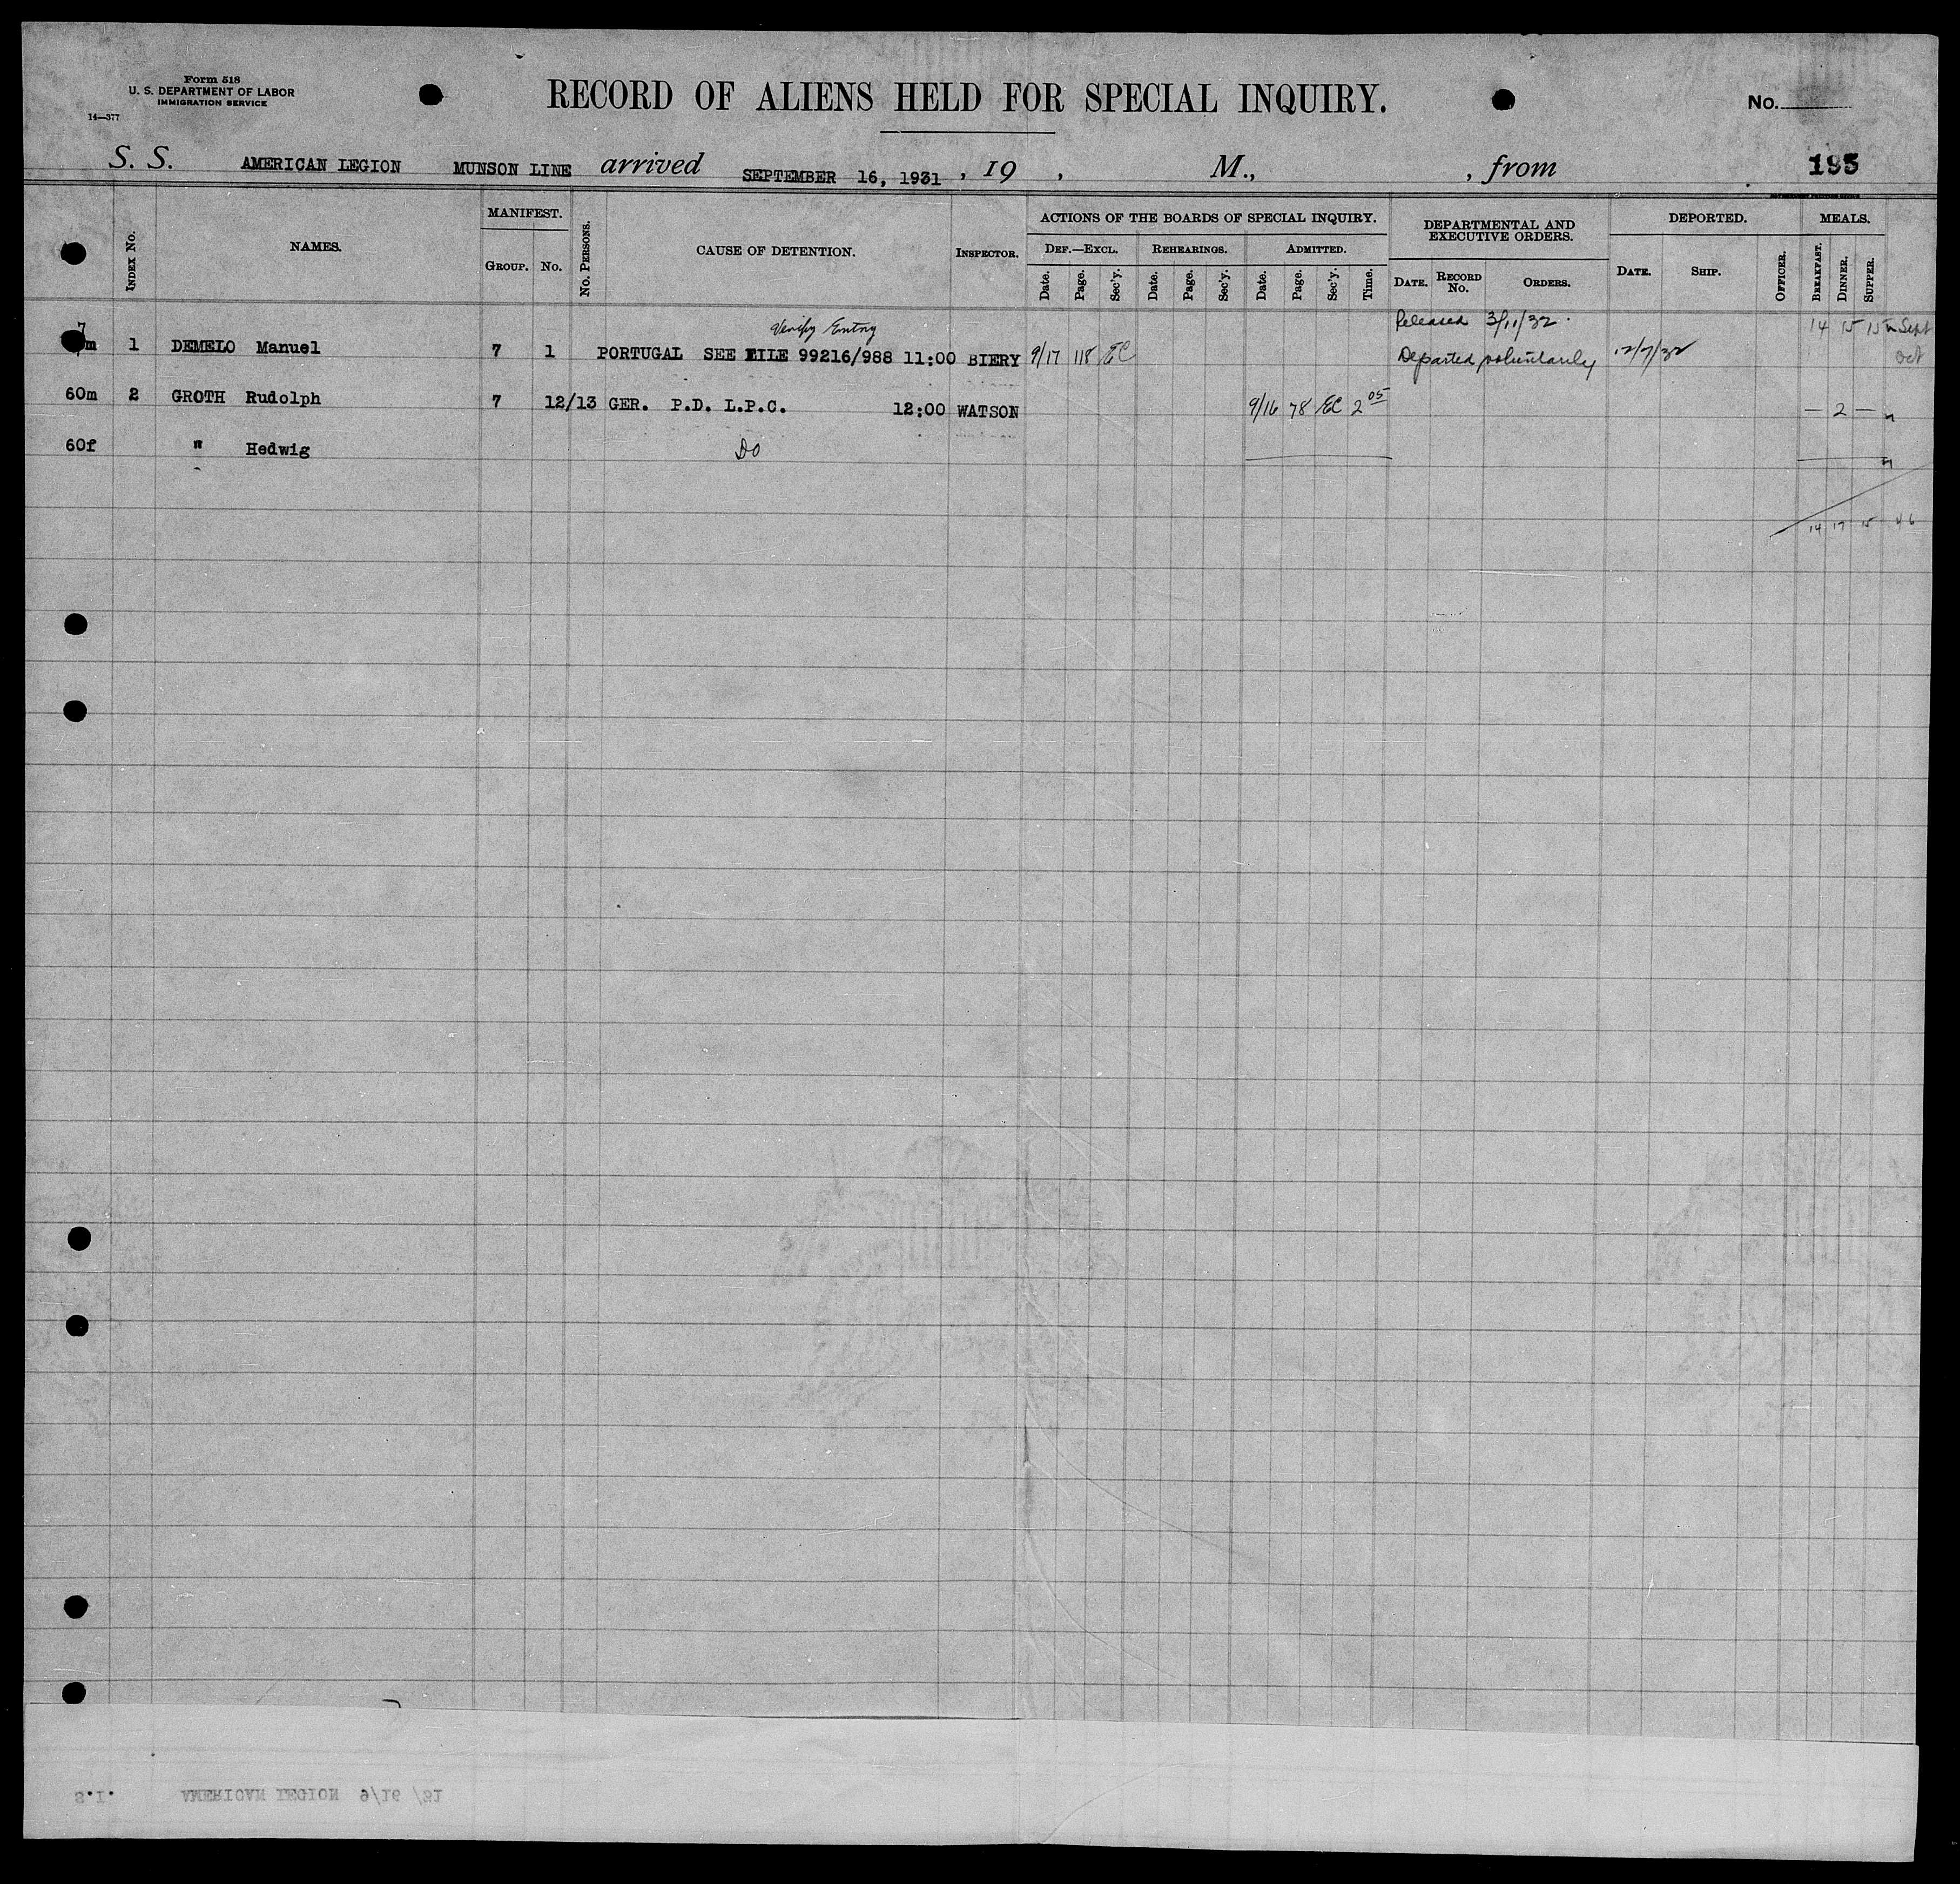 Form 518
U. S. DEPARTMENT OF LABOR
IMMIGRATION SERVICE
14—377
RECORD OF ALIENS HELD FOR SPECIAL INQUIRY.
No.
S. S. AMERICAN LEGION MUNSON LINE arrived SEPTEMBER 16, 1931 , 19 , M., , from 195
INDEX No.
NAMES.
MANIFEST.
GROUP. No.
No. PERSONS.
CAUSE OF DETENTION.
INSPECTOR.
ACTIONS OF THE BOARDS OF SPECIAL INQUIRY.
DEF.—EXCL. REHEARINGS. ADMITTED.
Date. Page. Sec'y. Date. Page. Sec'y. Date. Page. Sec'y. Time.
DEPARTMENTAL AND EXECUTIVE ORDERS.
DATE. RECORD No. ORDERS.
DEPORTED.
DATE. SHIP. OFFICER.
MEALS.
BREAKFAST. DINNER. SUPPER.
7 Verify Entry Released 3/11/32. 14 15 15 Sept
m 1 DEMELO Manuel 7 1 PORTUGAL SEE FILE 99216/988 11:00 BIERY 9/17 118 EC Departed voluntarily 12/7/32 Oct
60m 2 GROTH Rudolph 7 12/13 GER. P.D. L.P.C. 12:00 WATSON 9/16 78 EC 2 05 — 2 —
60f " Hedwig Do
14 17 15 46
S.I. AMERICAN LEGION 9/16 /31